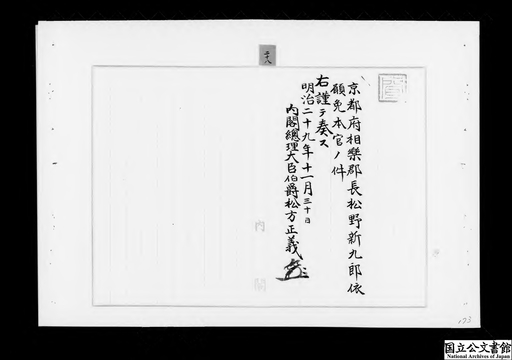 二十八
京都府相樂郡長松野新九郎依
願免本官ノ件
右謹テ奏ス
明治二十九年十一月三十日
内閣總理大臣伯爵松方正義
内閣
173
国立公文書館
National Archives of Japan